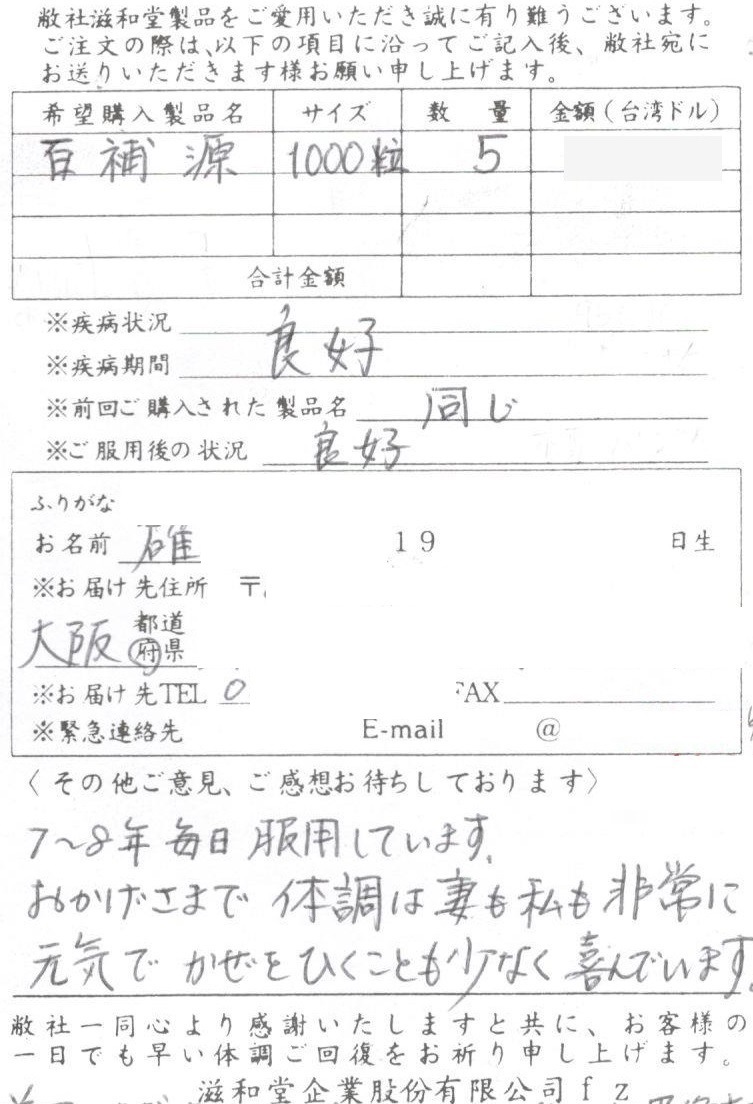 敝社滋和堂製品をご愛用いただき誠に有り難うございます。
ご注文の際は、以下の項目に沿ってご記入後、敝社宛に
お送りいただきます様お願い申し上げます。
希望購入製品名 サイズ 数 量 金額(台湾ドル)
百補源 1000粒 5
合計金額
※疾病状況 良好
※疾病期間
※前回ご購入された製品名 同じ
※ご服用後の状況 良好
ふりがな
お名前 確 19 日生
※お届け先住所 〒
大阪 都道府県
※お届け先TEL 0 FAX
※緊急連絡先 E-mail @
〈その他ご意見、ご感想お待ちしております〉
7~8年毎日服用しています。
おかげさまで体調は妻も私も非常に
元気でかぜをひくことも少なく喜んでいます。
敝社一同心より感謝いたしますと共に、お客様の
一日でも早い体調ご回復をお祈り申し上げます。
滋和堂企業股份有限公司 f z